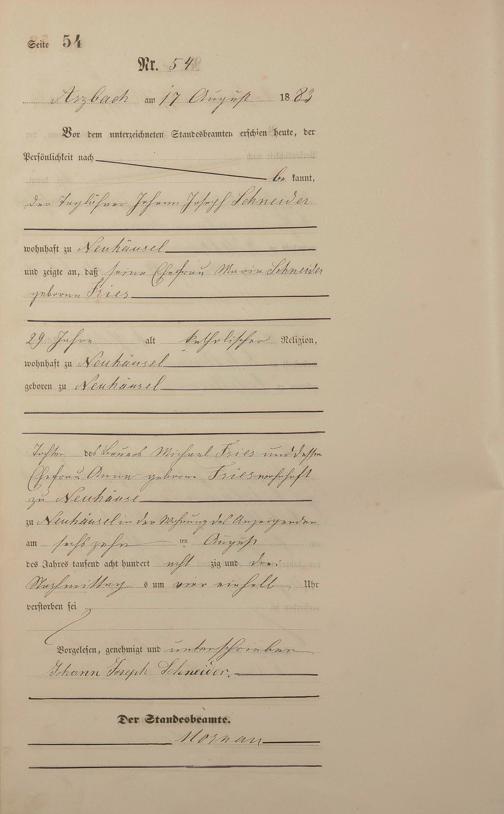 Seite 54
Nr. 54
Arzbach am 17 August 1883
Vor dem unterzeichneten Standesbeamten erschien heute, der
Persönlichkeit nach
be kannt,
der Taglöhner Johann Joseph Schneider
wohnhaft zu Neuhäusel
und zeigte an, daß seine Ehefrau Maria Schneider
geborene Fries
29 Jahre alt katholischer Religion,
wohnhaft zu Neuhäusel
geboren zu Neuhäusel
Tochter des Bauers Michael Fries und dessen
Ehefrau Anna geborene Fries wohnhaft
zu Neuhäusel
zu Neuhäusel in der Wohnung des Anzeigenden
am sechszehn ten August
des Jahres tausend acht hundert acht zig und drei
Nachmittag s um vier einhalb Uhr
verstorben sei
Vorgelesen, genehmigt und unterschrieben
Johann Joseph Schneider.
Der Standesbeamte.